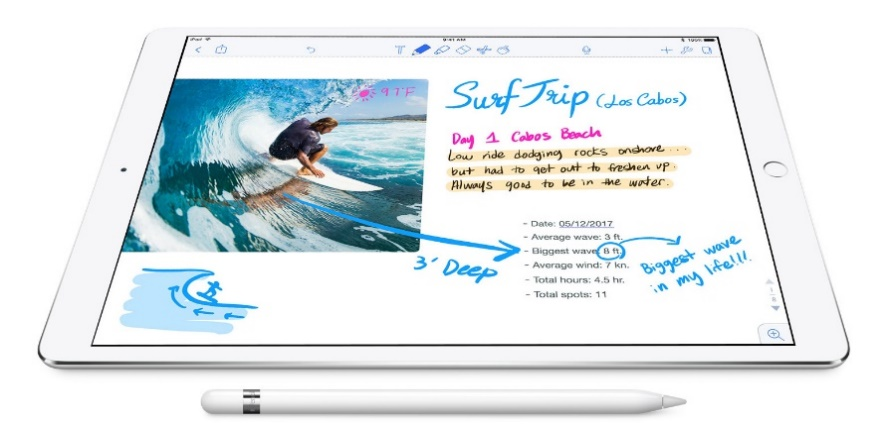 iPad
9:41 AM
100%
97°F
Surf Trip (Los Cabos)
Day 1 Cabos Beach
Low ride dodging rocks onshore ...
but had to get out to freshen up.
Always good to be in the water.
- Date: 05/12/2017
- Average wave: 3 ft.
- Biggest wave: 8 ft.
- Average wind: 7 kn.
- Total hours: 4.5 hr.
- Total spots: 11
3' Deep
Biggest wave
in my life!!!